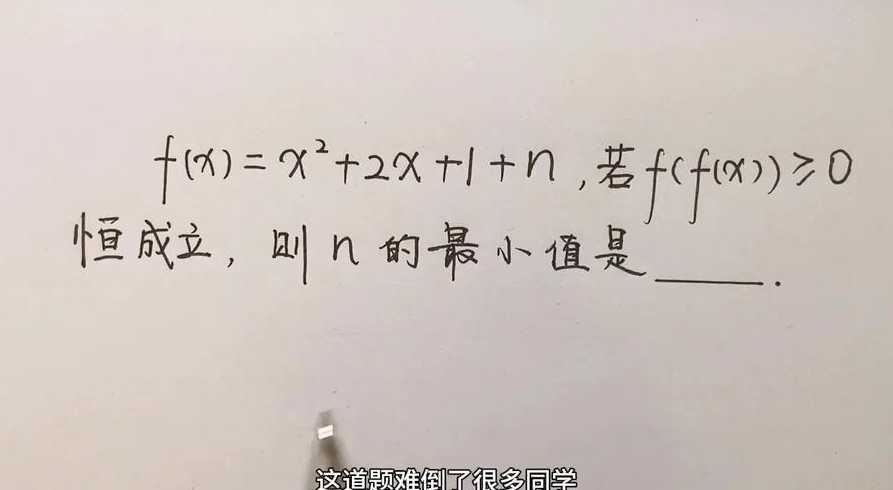 f(x)=x²+2x+1+n,若f(f(x))≥0
恒成立,则n的最小值是____.
这道题难倒了很多同学